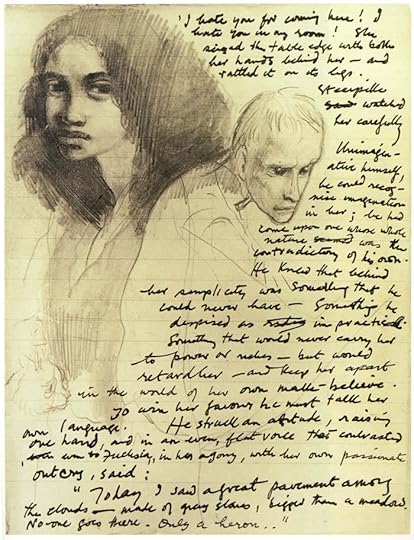 'I hate you for coming here! I
hate you in my room! She
seized the table edge with both
her hands behind her — and
rattled it on its legs.
Steerpike
watched
her carefully
Unimagin-
ative himself,
he could recog-
nise imagination
in her; he had
come upon one whose whole
nature seemed was the
contradictory of his own.
He knew that behind
her simplicity was something that he
could never have — Something he
despised as in practical.
Something that would never carry her
to power or riches — but would
retard her — and keep her apart
in the world of her own make-believe.
To win her favour he must talk her
own language. He struck an attitude, raising
one hand, and in an even, flat voice that contrasted
to Fuchsia, in her agony, with her own passionate
outcry, said:
"Today I saw a great pavement among
the clouds — made of grey stones, bigger than a meadow.
No-one goes there. Only a heron.."